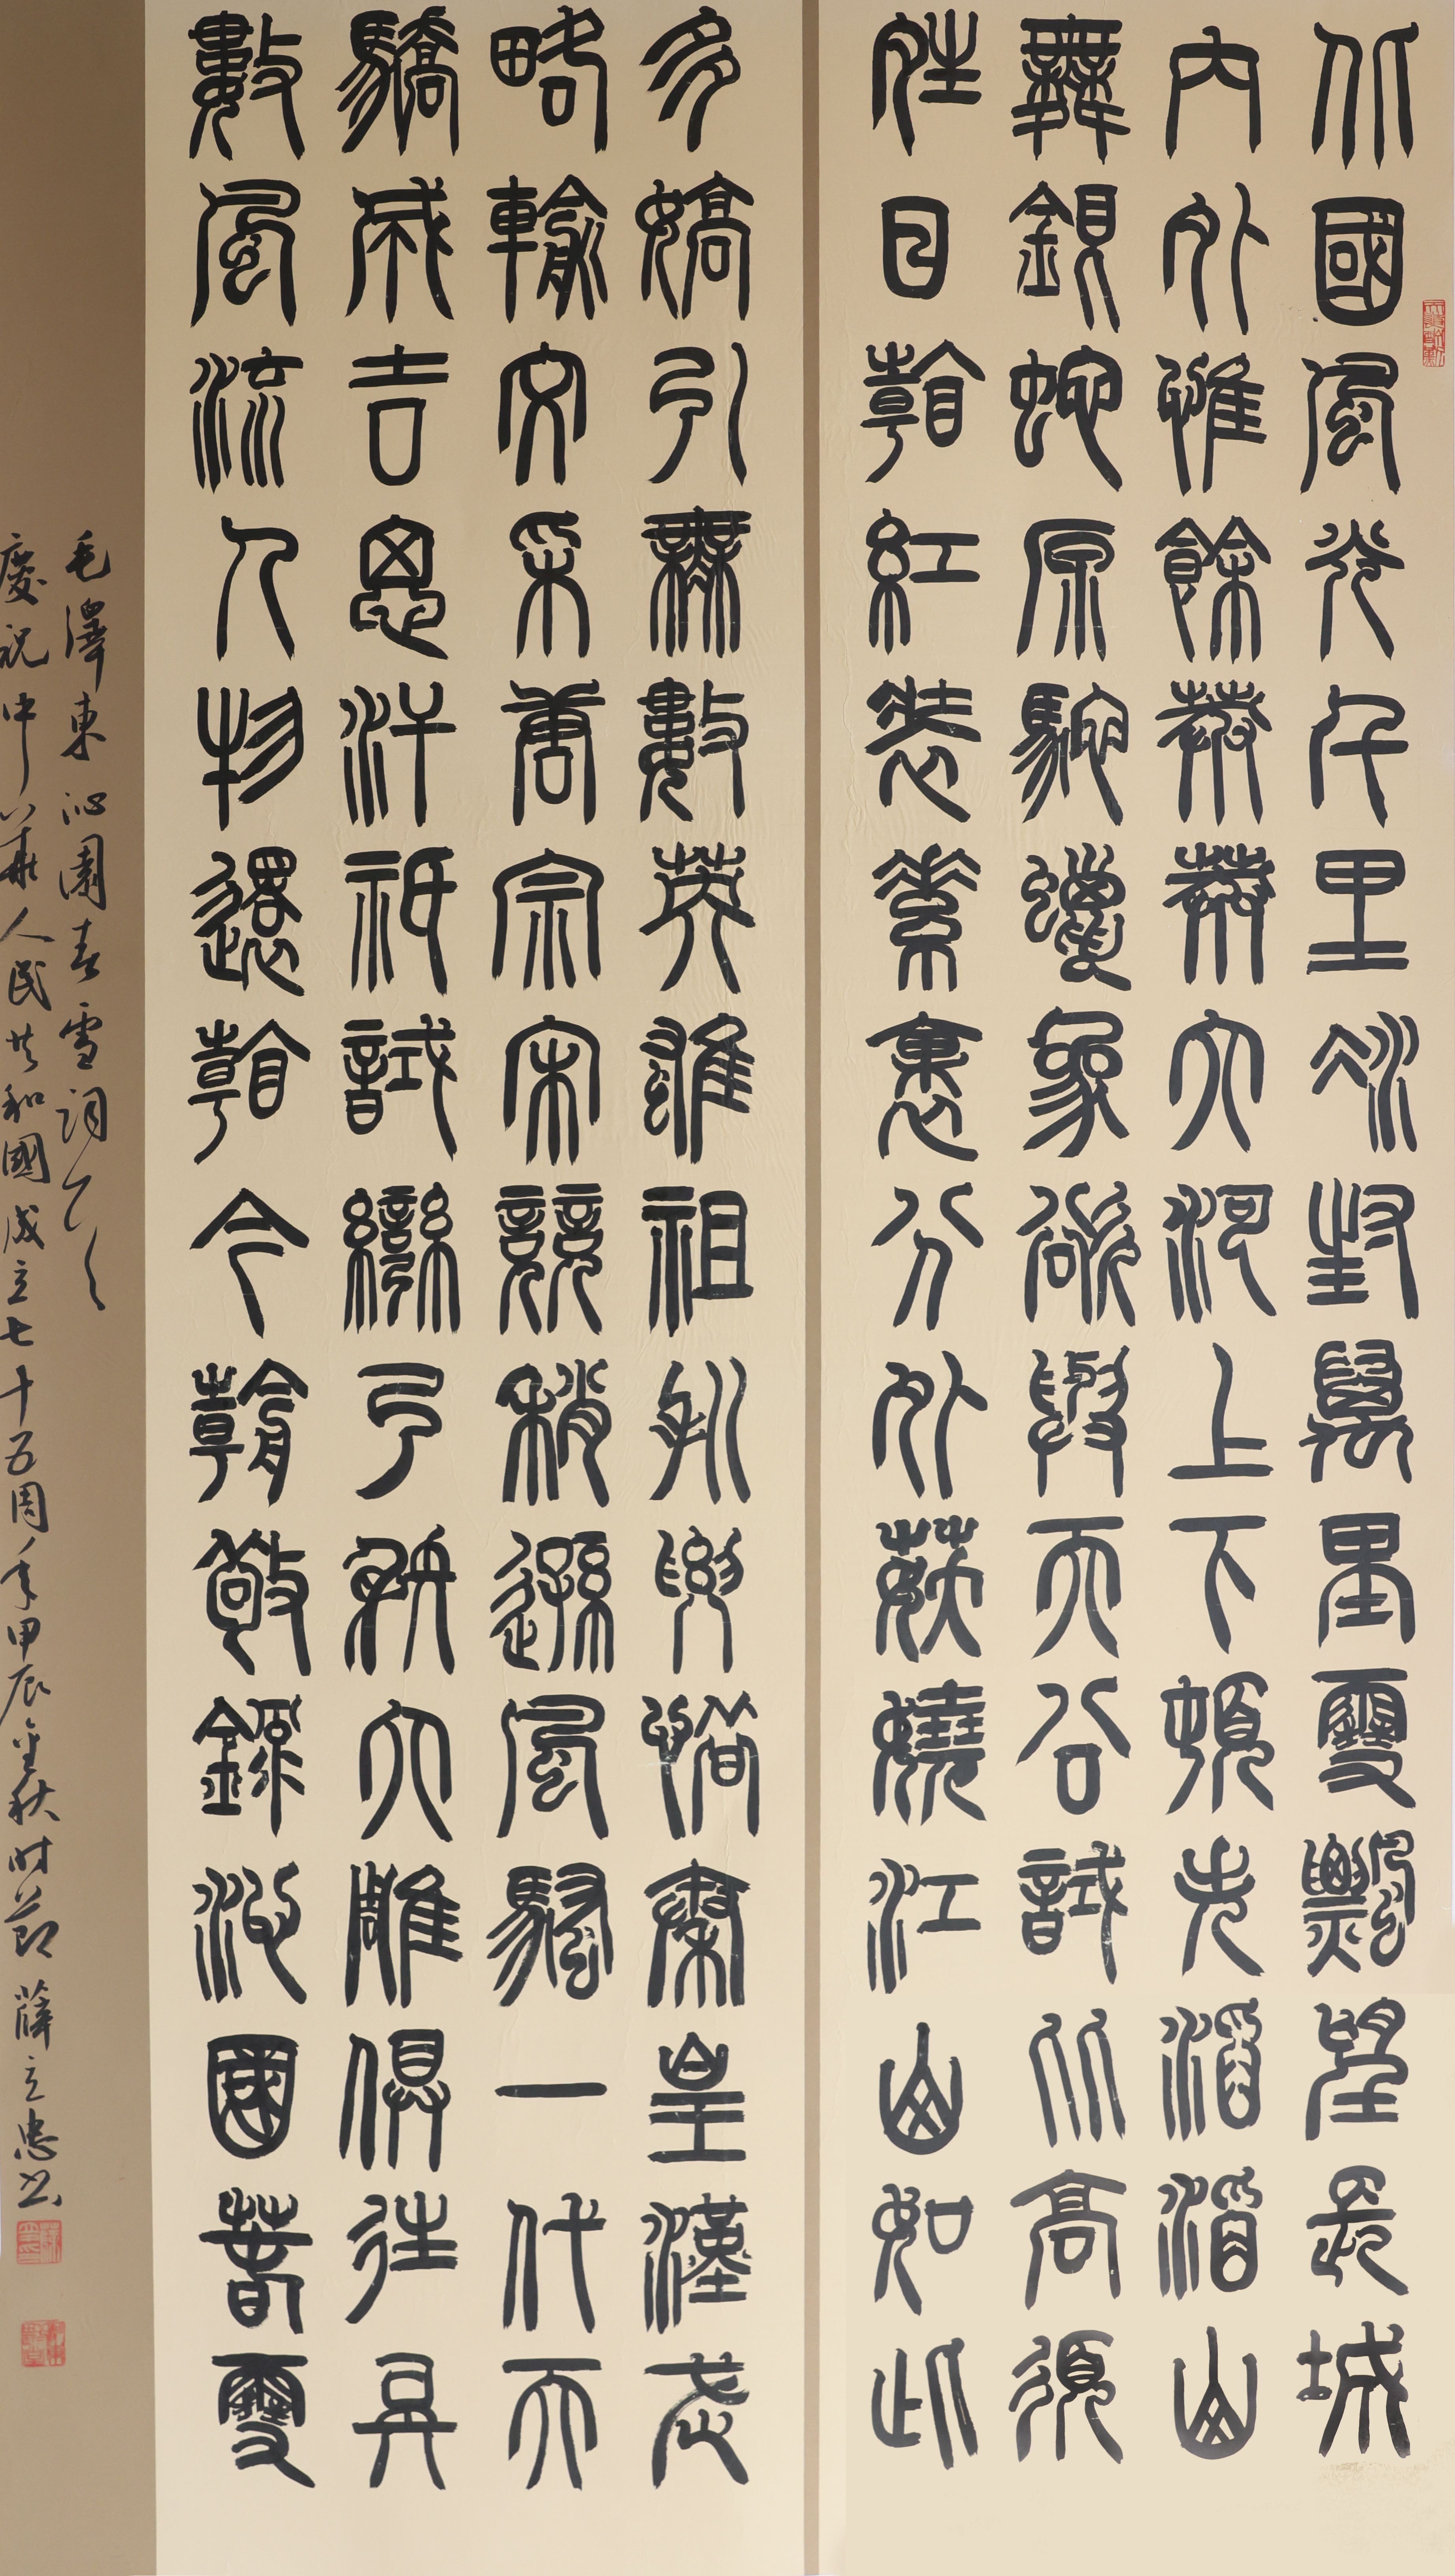 北國風光千里冰封萬里雪飄望長城
內外惟餘莽莽大河上下頓失滔滔山
舞銀蛇原馳蠟象欲與天公試比高須
晴日看紅裝素裹分外妖嬈江山如此
多嬌引無數英雄祖折腰惜秦皇漢武
略輸文采唐宗宋競稍遜風騷一代天
驕成吉思汗祇識彎弓射大雕俱往矣
數風流人物還看今朝敬錄沁園春雪
毛澤東沁園春雪詞
慶祝中華人民共和國成立七十五周年甲辰金秋時節薛立忠书